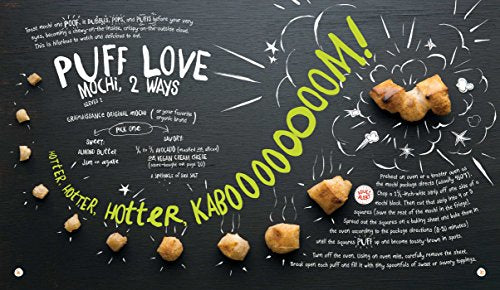 Toast mochi and POOF, it BUBBLES, POPS, and PUFFS before your very
eyes, becoming a chewy-on-the-inside, crispy-on-the-outside cloud.
This is hilarious to watch and delicious to eat.
PUFF LOVE
MOCHI, 2 WAYS
SERVES 2
GRAINAISSANCE ORIGINAL MOCHI (or your favorite
organic brand
PICK ONE
SWEET:
ALMOND BUTTER
JAM or agave
SAVORY:
AVOCADO
VEGAN CREAM CHEESE
A SPRINKLE OF SEA SALT
HOTTER, HOTTER, HOTTER, KABOOOOOOOOOOM!
Preheat an oven or a toaster oven as
the mochi package directs (usually 450°F).
Chop a 1½-inch-wide strip off one side of a
mochi block. Then cut that strip into 4 or 5
squares (save the rest of the mochi in the fridge).
Spread out the squares on a baking sheet and bake them in
the oven according to the package directions (8-10 minutes)
until the squares PUFF up and become toasty-brown in spots.
Turn off the oven. Using an oven mitt, carefully remove the sheet.
Break open each puff and fill it with tiny spoonfuls of sweet or savory toppings.